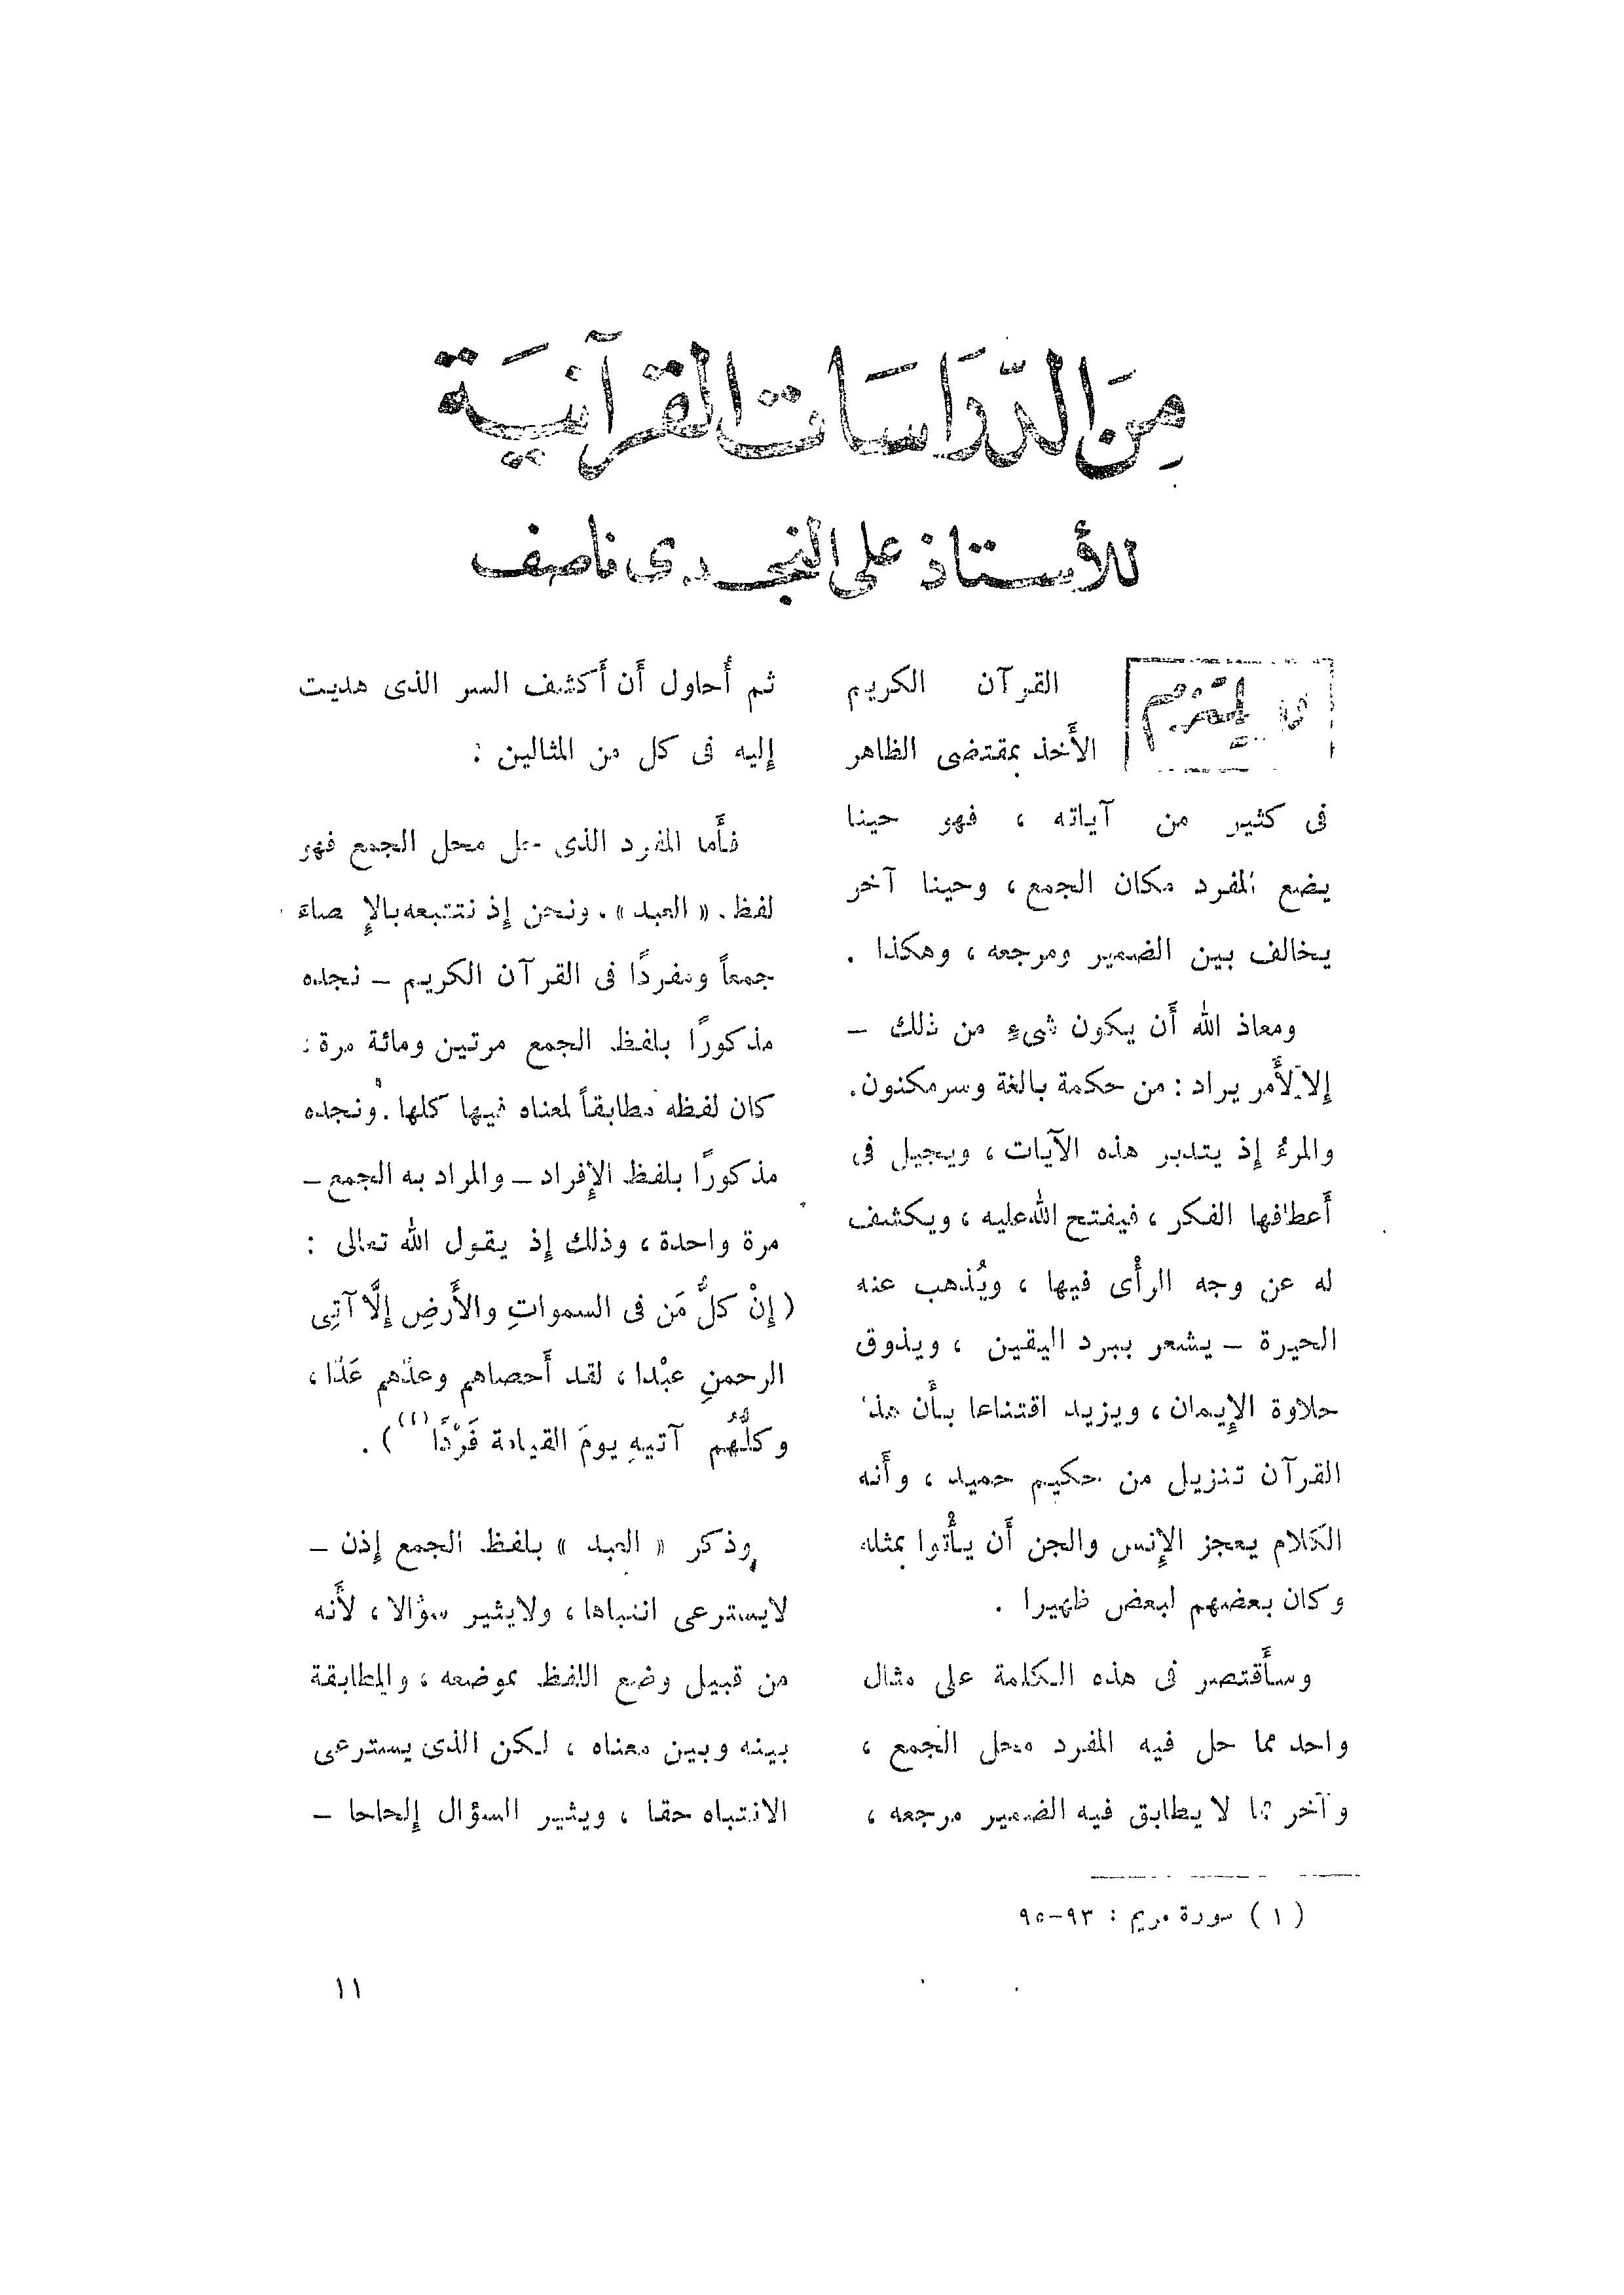 مِنَ الدِّرَاسَات القرآنيَة
للأستاذ على النجدى ناصف
يلتزم
القرآن الكريم
الأَخذ بمقتضى الظاهر
فى كثير من آياته ، فهو حينا
يضع المفرد مكان الجمع ، وحينا آخر
يخالف بين الضمير ومرجعه ، وهكذا .
ومعاذ الله أَن يكون شىءٍ من ذلك –
إلا لأَمر يراد : من حكمة بالغة وسر مكنون .
والمرءُ إذ يتدبر هذه الآيات ، ويجيل فى
أَعطافها الفكر ، فيفتح الله عليه ، ويكشف
له عن وجه الرأْى فيها ، ويُذهب عنه
الحيرة – يشعر ببرد اليقين ، ويذوق
حلاوة الإِيمان ، ويزيد اقتناعا بأَن هذا
القرآن تنزيل من حكيم حميد ، وأَنه
الكلام يعجز الإِنس والجن أَن يأْتوا بمثله
وكان بعضهم لبعض ظهيرا .
وسأَقتصر فى هذه الكلمة على مثال
واحد مما حل فيه المفرد محل الجمع ،
وآخر مما لا يطابق فيه الضمير مرجعه ،
ثم أُحاول أَن أَكشف السر الذى هديت
إِليه فى كل من المثالين :
فأَما المفرد الذى حل محل الجمع فهو
لفظ « العبد » . ونحن إِذ نتتبعه بالإِحصاء
جمعاً ومفردًا فى القرآن الكريم – نجده
مذكورًا بلفظ الجمع مرتين ومائة مرة :
كان لفظه مطابقاً لمعناه فيها كلها . ونجده
مذكورًا بلفظ الإِفراد – والمراد به الجمع –
مرة واحدة ، وذلك إِذ يقول الله تعالى :
( إِنْ كلُّ مَن فى السمواتِ والأَرضِ إِلَّا آتِى
الرحمنِ عبْدا ، لقد أَحصاهم وعدّهم عَدّا ،
وكلُّهُم آتيهِ يومَ القيامة فَرْدًا (١) ) .
وذكر « العبد » بلفظ الجمع إِذن –
لا يسترعى انتباها ، ولا يثير سؤالا ، لأَنه
من قبيل وضع اللفظ بموضعه ، والمطابقة
بينه وبين معناه ، لكن الذى يسترعى
الانتباه حقا ، ويثير السؤال إِلحاحا –
( ١ ) سورة مريم : ٩٣–٩٥
١١